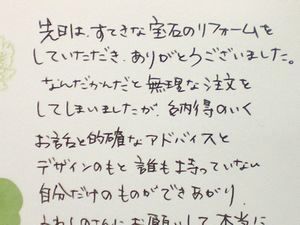 先日は、すてきな宝石のリフォームを
していただき、ありがとうございました。
なんだかんだと無理な注文を
してしまいましたが、納得のいく
お話と的確なアドバイスと
デザインのもと誰も持っていない
自分だけのものができあがり、
にお願いして本当に